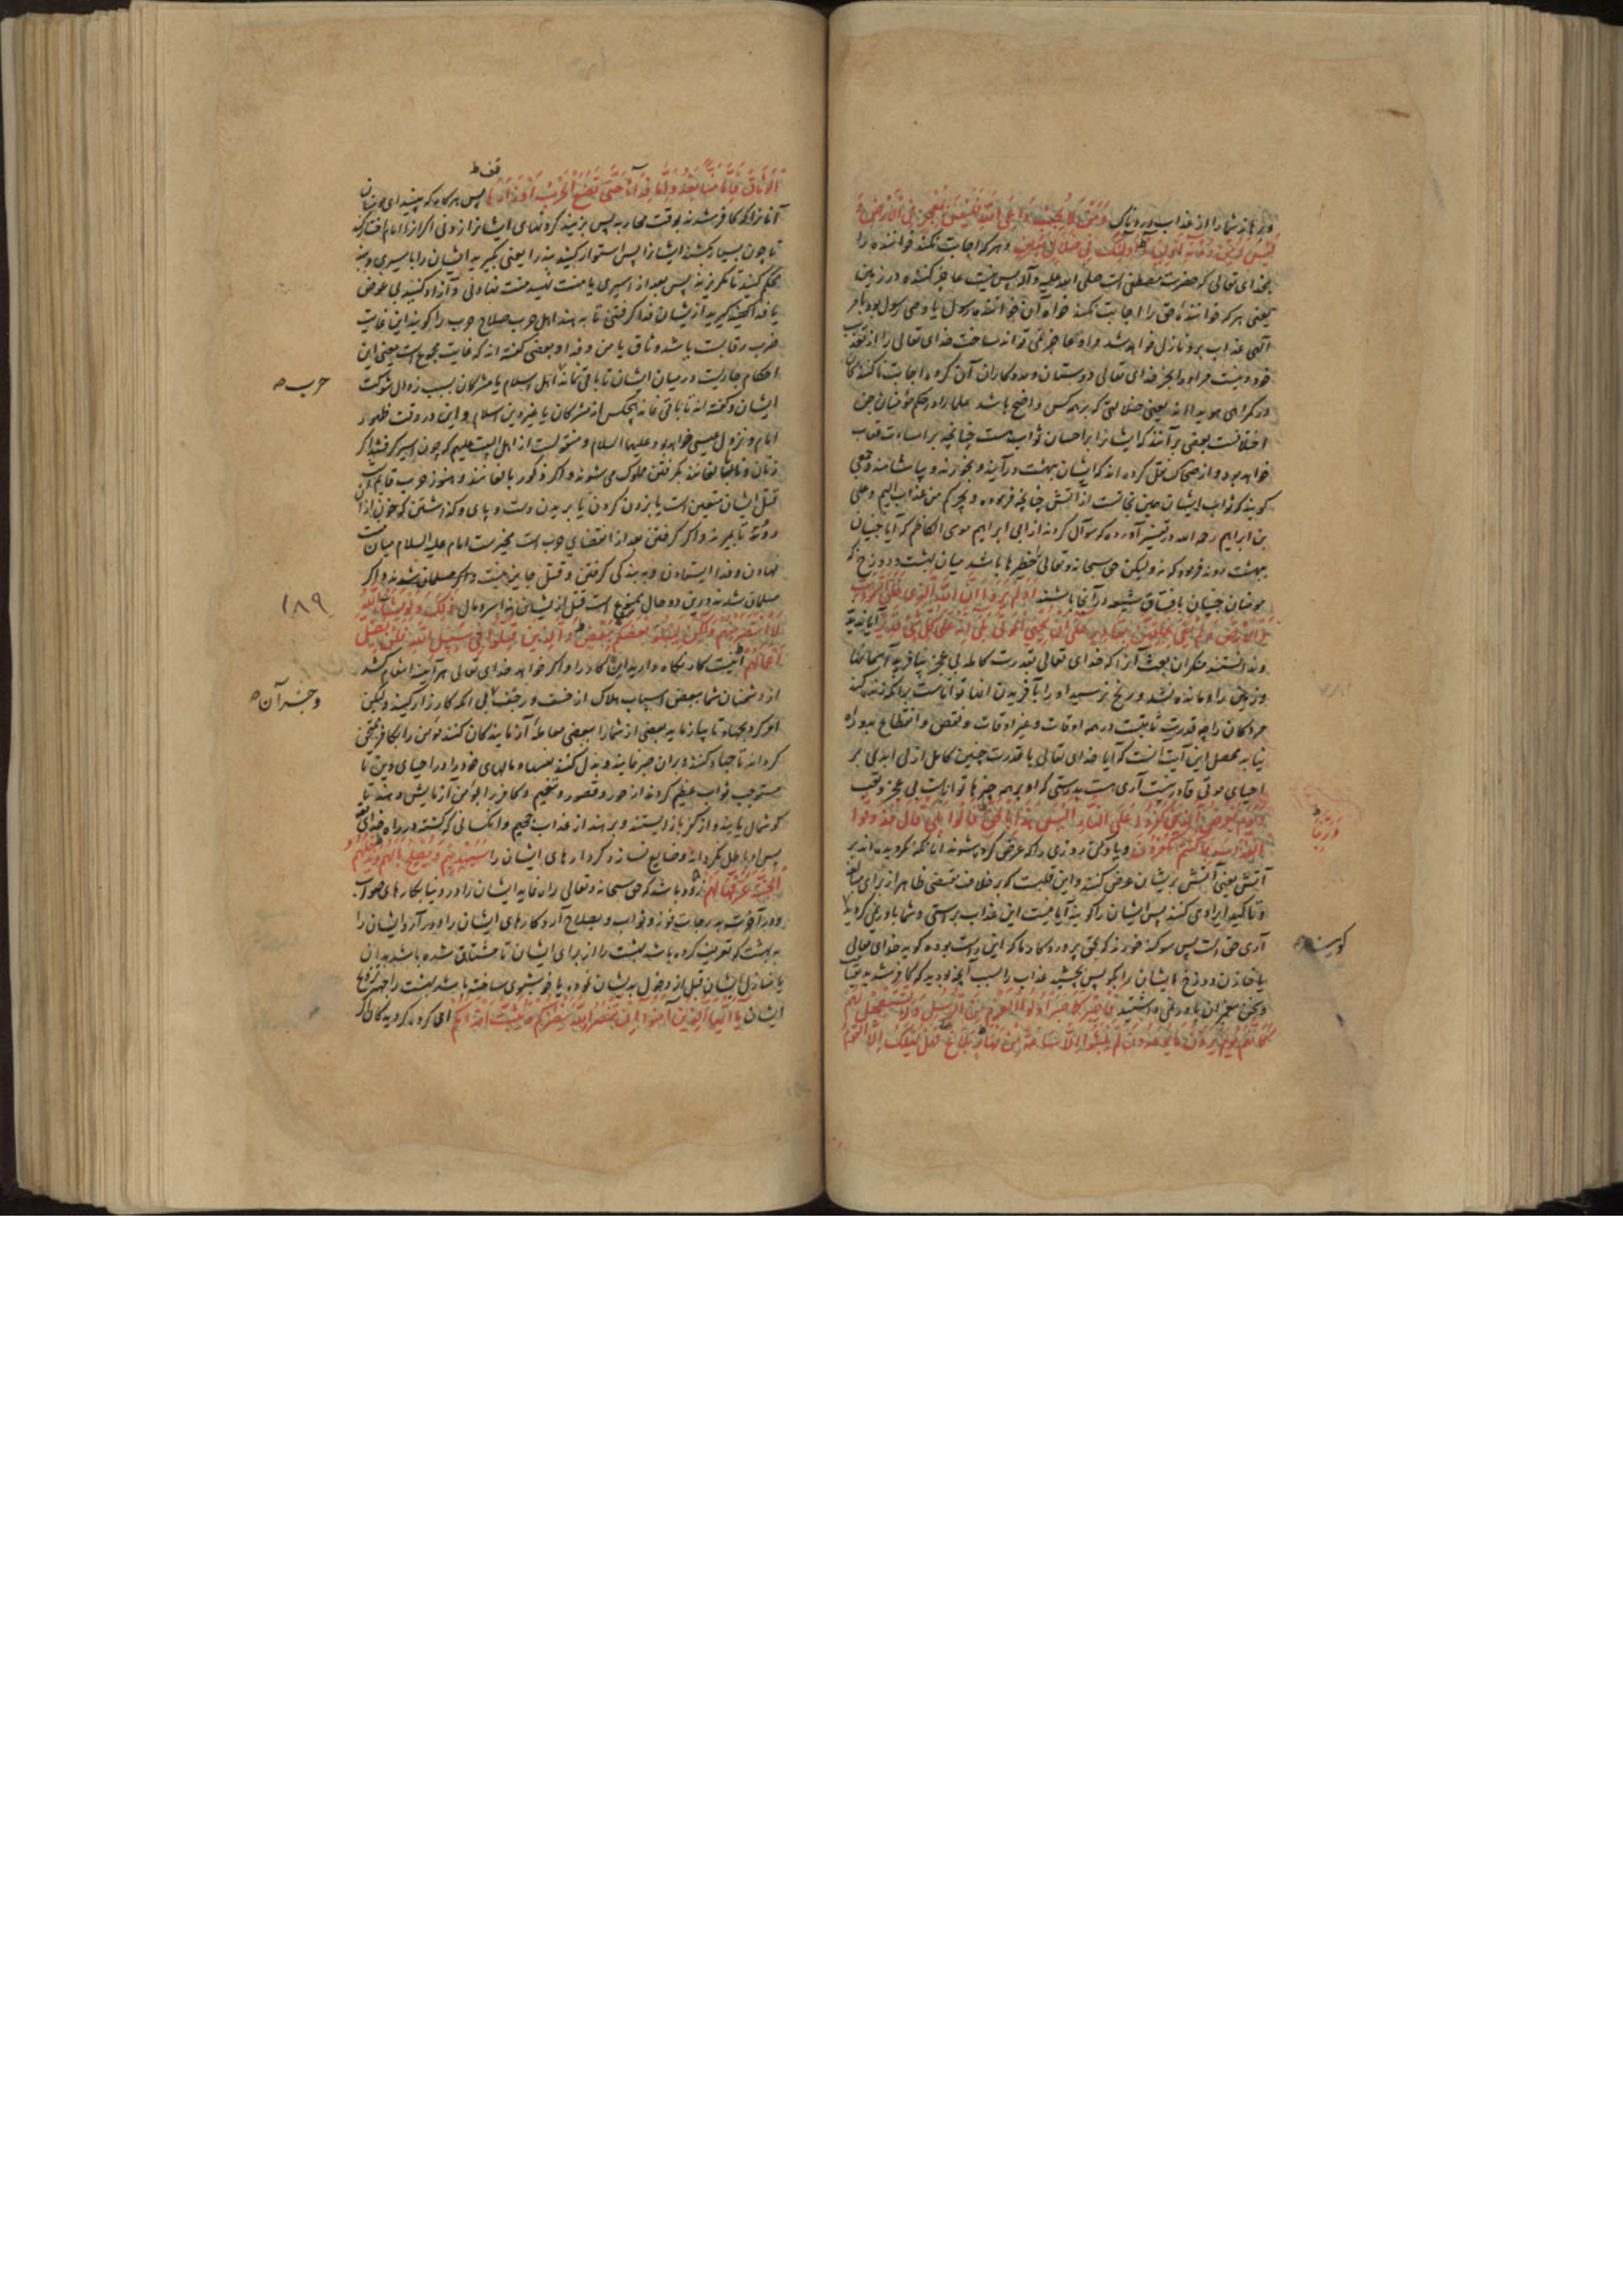 وبرهاند شما را از عذاب دردناک وَمَنْ لَا يُجِبْ دَاعِيَ اللَّهِ فَلَيْسَ بِمُعْجِزٍ فِي الْأَرْضِ وَ
لَيْسَ لَهُ مِنْ دُونِهِ أَوْلِيَاءُ أُولَئِكَ فِي ضَلَالٍ مُبِينٍ و هر که اجابت نکند خواننده را
بخدای تعالی که حضرت مصطفی است صلی الله علیه وآله پس نیست عاجز کننده در زمین
یعنی هر که خواننده حق را اجابت نکند خواه آن خواننده رسول یا وصی رسول بود بامر
الهی عذاب برو نازل خواهد شد و او عاجز نمی تواند ساخت خدای تعالی را از تعذیب
خود و نیست مر او را بجز خدای تعالی دوستان و مددکاران آن گروه اجابت ناکنندگان
در گمراهی هویدااند یعنی ضلالتی که بر همه کس واضح باشد علما را در حکم مؤمنان جن
اختلافست بعضی برآنند که ایشانرا بر احسان ثواب هست چنانچه بر اساءت عقاب
خواهد بود و از ضحاک نقل کرده اند که ایشان ببهشت درآیند و بخورند و بیاشامند و جمعی
گویند که ثواب ایشان همین نجاتست از آتش چنانچه فرموده و یجرکم من عذاب الیم و علی
بن ابراهیم رحمه الله در تفسیر آورده که سوال کردند از ابی ابراهیم موسی الکاظم که آیا جنیان
ببهشت روند فرمود که نه ولیکن حق سبحانه وتعالی را حظیرها باشد میان بهشت و دوزخ که
مومنان جنیان با فساق شیعه در آنجا باشند أَوَلَمْ يَرَوْا أَنَّ اللَّهَ الَّذِي خَلَقَ السَّمَوَاتِ
وَالْأَرْضَ وَلَمْ يَعْيَ بِخَلْقِهِنَّ بِقَادِرٍ عَلَى أَنْ يُحْيِيَ الْمَوْتَى بَلَى إِنَّهُ عَلَى كُلِّ شَيْءٍ قَدِيرٌ آیا ندیدند
وندانستند منکران بعث آنرا که خدای تعالی بقدرت کامله بی عجز بیافرید آسمانها
وزمین را و مانده نشد و رنج نرسید او را بآفریدن اینها تواناست بر آنکه زنده کند
مردگان را چه قدرت ثابتست در همه اوقات و غیر اوقات و نقص و انقطاع بدو راه
نیابد محصل این آیت آنست که آیا خدای تعالی با قدرت چنین کامل ازلی ابدی بر
احیای موتی قادر نیست آری هست بدرستی که او بر همه چیزها تواناست بی عجز و تعب
وَيَوْمَ يُعْرَضُ الَّذِينَ كَفَرُوا عَلَى النَّارِ أَلَيْسَ هَذَا بِالْحَقِّ قَالُوا بَلَى وَرَبِّنَا قَالَ فَذُوقُوا
الْعَذَابَ بِمَا كُنْتُمْ تَكْفُرُونَ و یاد کن روزی را که عرض کرده شوند آنانکه نگرویده اند بر
آتش یعنی آتش بریشان عرض کنند و این قلبست که بر خلاف مقتضی ظاهر از برای مبالغه
و تاکید ایراد می کنند پس ایشان را گویند آیا نیست این عذاب براستی و شما باور نمی کردید
گویند آری حق است پس سوگند خورند که بحق پروردگار ما که این راست بوده گوید خدای تعالی
یا خازن دوزخ ایشان را بگو پس بچشید عذاب را بسبب آنچه بودید که کافر شدید
و سخن پیغمبران باور نمی داشتید فَاصْبِرْ كَمَا صَبَرَ أُولُو الْعَزْمِ مِنَ الرُّسُلِ وَلَا تَسْتَعْجِلْ لَهُمْ
كَأَنَّهُمْ يَوْمَ يَرَوْنَ مَا يُوعَدُونَ لَمْ يَلْبَثُوا إِلَّا سَاعَةً مِنْ نَهَارٍ بَلَاغٌ فَهَلْ يُهْلَكُ إِلَّا الْقَوْمُ
الْوَثَاقَ فَإِمَّا مَنًّا بَعْدُ وَإِمَّا فِدَاءً حَتَّى تَضَعَ الْحَرْبُ أَوْزَارَهَا پس هرگاه که ببینید ای مومنان
آنانرا که کافر شدند بوقت محاربه پس بزنید گردنهای ایشانرا
تا چون بسیار بکشند ایشانرا پس استوار کنید بند را یعنی بگیرید ایشان را باسیری و بند
محکم کنید تا نگریزند پس بعد از اسیری یا منت نهید منت نهادنی و آزاد کنید بی عوض
یا فدا گیرید ازیشان فدا گرفتنی تا بنهند اهل حرب سلاح حرب را گویند این غایت
ضرب رقابست یا شد وثاق یا من و فدا و بعضی گفته اند که غایت مجموع است یعنی این
احکام جاریست در میان ایشان تا باقی نماند حرب اهل اسلام با مشرکان بسبب زوال شوکت
ایشان و گفته اند تا باقی نماند هیچکس از مشرکان یا غیر دین اسلام و این در وقت ظهور
امام و نزول عیسی خواهد بود علیهما السلام و منقولست از اهل البیت علیهم که چون اسیر گرفته شد اگر
زنان و نابالغانند بگرفتن مملوک می شوند و اگر ذکور بالغانند و هنوز حرب قایم است
قتل ایشان متعین است یا بزدن گردن یا بریدن دست و پای و گذاشتن که خون از آن
رود تا بمیرند و اگر گرفتن بعد از انقضای حرب است مخیرست امام علیه السلام میان منت
نهادن و فدا ایستادن و به بندگی گرفتن و قتل جایز نیست و اگر مسلمان شدند و اگر
مسلمان شدند درین دو حال ممنوع است قتل ازیشان ذَلِكَ وَلَوْ يَشَاءُ اللَّهُ
لَانْتَصَرَ مِنْهُمْ وَلَكِنْ لِيَبْلُوَ بَعْضَكُمْ بِبَعْضٍ وَالَّذِينَ قُتِلُوا فِي سَبِيلِ اللَّهِ فَلَنْ يُضِلَّ
أَعْمَالَهُمْ اینست کار نگاه دارید این کار را و اگر خواهد خدای تعالی هر آینه انتقام کشد
از دشمنان شما ببعضی اسباب هلاک از خسف و رجف بی آنکه کارزار کنید ولیکن
امر کرد بجهاد تا بیازماید بعضی از شما را ببعضی معامله آزمایندگان کنند مومن را بکافر
گرداند تا جهاد کنند و بران صبر نمایند و بذل کنند نفسها و مالهای خود را در احیای دین تا
مستوجب ثواب عظیم گردند از حور و قصور و تنعیم و کافر را بمومن آزمایش دهند تا
گوشمال یابند و از کفر باز ایستند و برهند از عذاب جحیم و آنکسانی که کشته شدند در راه خدای
پس او باطل نگرداند و ضایع نسازد کردارهای ایشان را سَيَهْدِيهِمْ وَيُصْلِحُ بَالَهُمْ وَيُدْخِلُهُمُ
الْجَنَّةَ عَرَّفَهَا لَهُمْ زود باشد که حق سبحانه وتعالی راه نماید ایشان را در دنیا بکارهای صواب
ودر آخرت بدرجات فوز و ثواب و بصلاح آرد کارهای ایشان را و درآرد ایشان را
به بهشت که تعریف کرده باشد بهشت را از برای ایشان تا مشتاق شده باشند بدان
یا منازل ایشان قبل از دخول بدیشان نموده یا خوشبوی ساخته باشد بهشت را جهت
ایشان يَا أَيُّهَا الَّذِينَ آمَنُوا إِنْ تَنْصُرُوا اللَّهَ يَنْصُرْكُمْ وَيُثَبِّتْ أَقْدَامَكُمْ ای گروه گرویدگان اگر
حرب
۱۸۹
و جز آن
وَرَبِّنَا
گویند